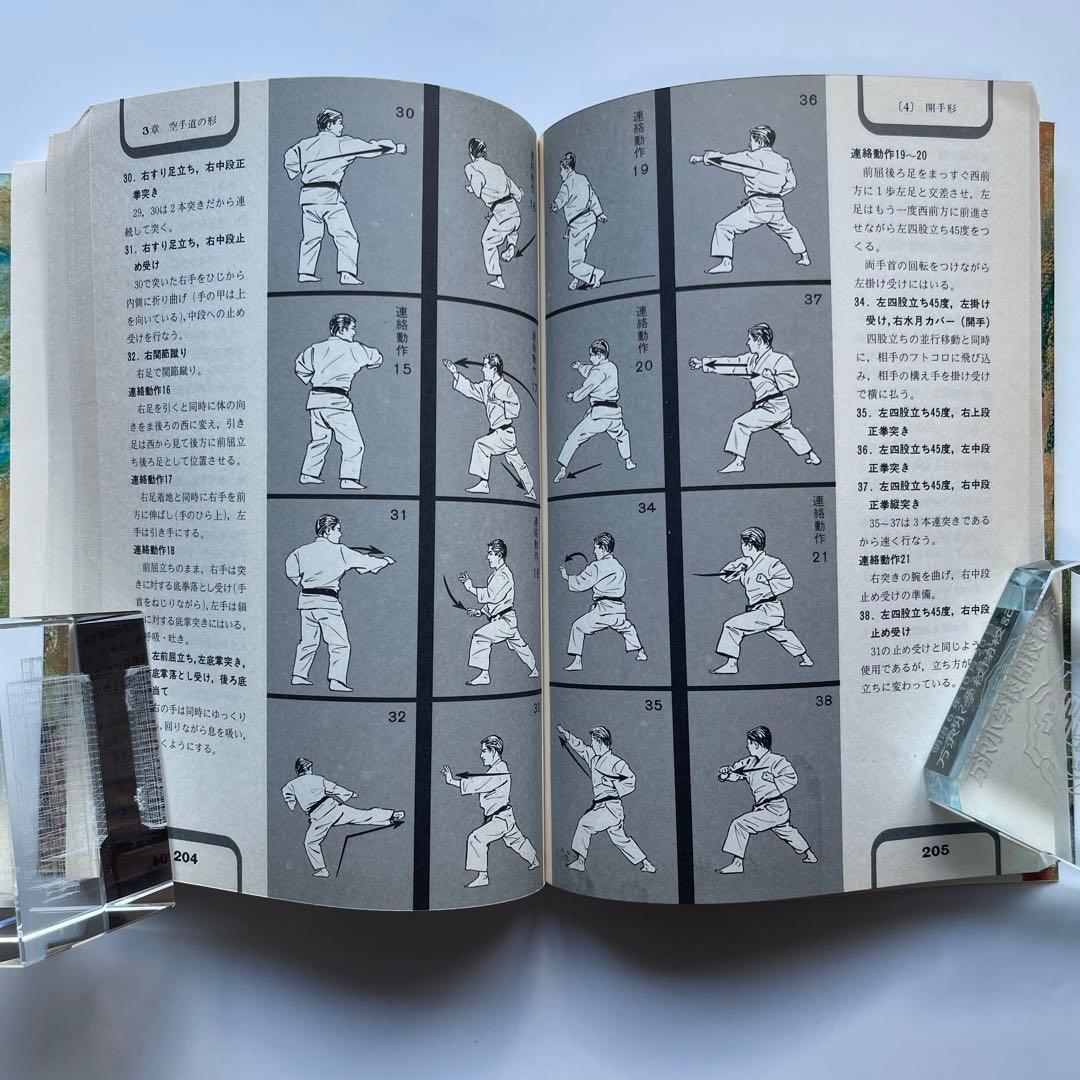 3章 空手道の形
30. 右すり足立ち，右中段正
拳突き
29，30は2本突きだから連
続して突く。
31. 右すり足立ち，右中段止
め受け
30で突いた右手をひじから
内側に折り曲げ（手の甲は上
を向いている），中段への止め
受けを行なう。
32. 右関節蹴り
右足で関節蹴り。
連絡動作16
右足を引くと同時に体の向
きをま後ろの西に変え，引き
足は西から見て後方に前屈立
ち後ろ足として位置させる。
連絡動作17
右足着地と同時に右手を前
方に伸ばし（手のひら上），左
手は引き手にする。
連絡動作18
前屈立ちのまま，右手は突
きに対する底拳落とし受け（手
首をねじりながら），左手は鎖
に対する底掌突きにはいる。
呼吸・吐き。
左前屈立ち，左底掌突き，
底掌落とし受け，後ろ底
当て
右の手は同時にゆっくり
，回りながら息を吸い，
くようにする。
204
30
連絡動作
15
31
32
連絡動作
17
連絡動作
18
33
連絡動作
19
連絡動作
20
34
35
36
37
連絡動作
21
38
〔4〕 開手形
連絡動作19〜20
前屈後ろ足をまっすぐ西前
方に1歩左足と交差させ，左
足はもう一度西前方に前進さ
せながら左四股立ち45度をつ
くる。
両手首の回転をつけながら
左掛け受けにはいる。
34. 左四股立ち45度，左掛け
受け，右水月カバー（開手）
四股立ちの並行移動と同時
に，相手のフトコロに飛び込
み，相手の構え手を掛け受け
で横に払う。
35. 左四股立ち45度，右上段
正拳突き
36. 左四股立ち45度，左中段
正拳突き
37. 左四股立ち45度，右中段
正拳縦突き
35〜37は3本連突きである
から速く行なう。
連絡動作21
右突きの腕を曲げ，右中段
止め受けの準備。
38. 左四股立ち45度，右中段
止め受け
31の止め受けと同じよう
使用であるが，立ち方が
立ちに変わっている。
205